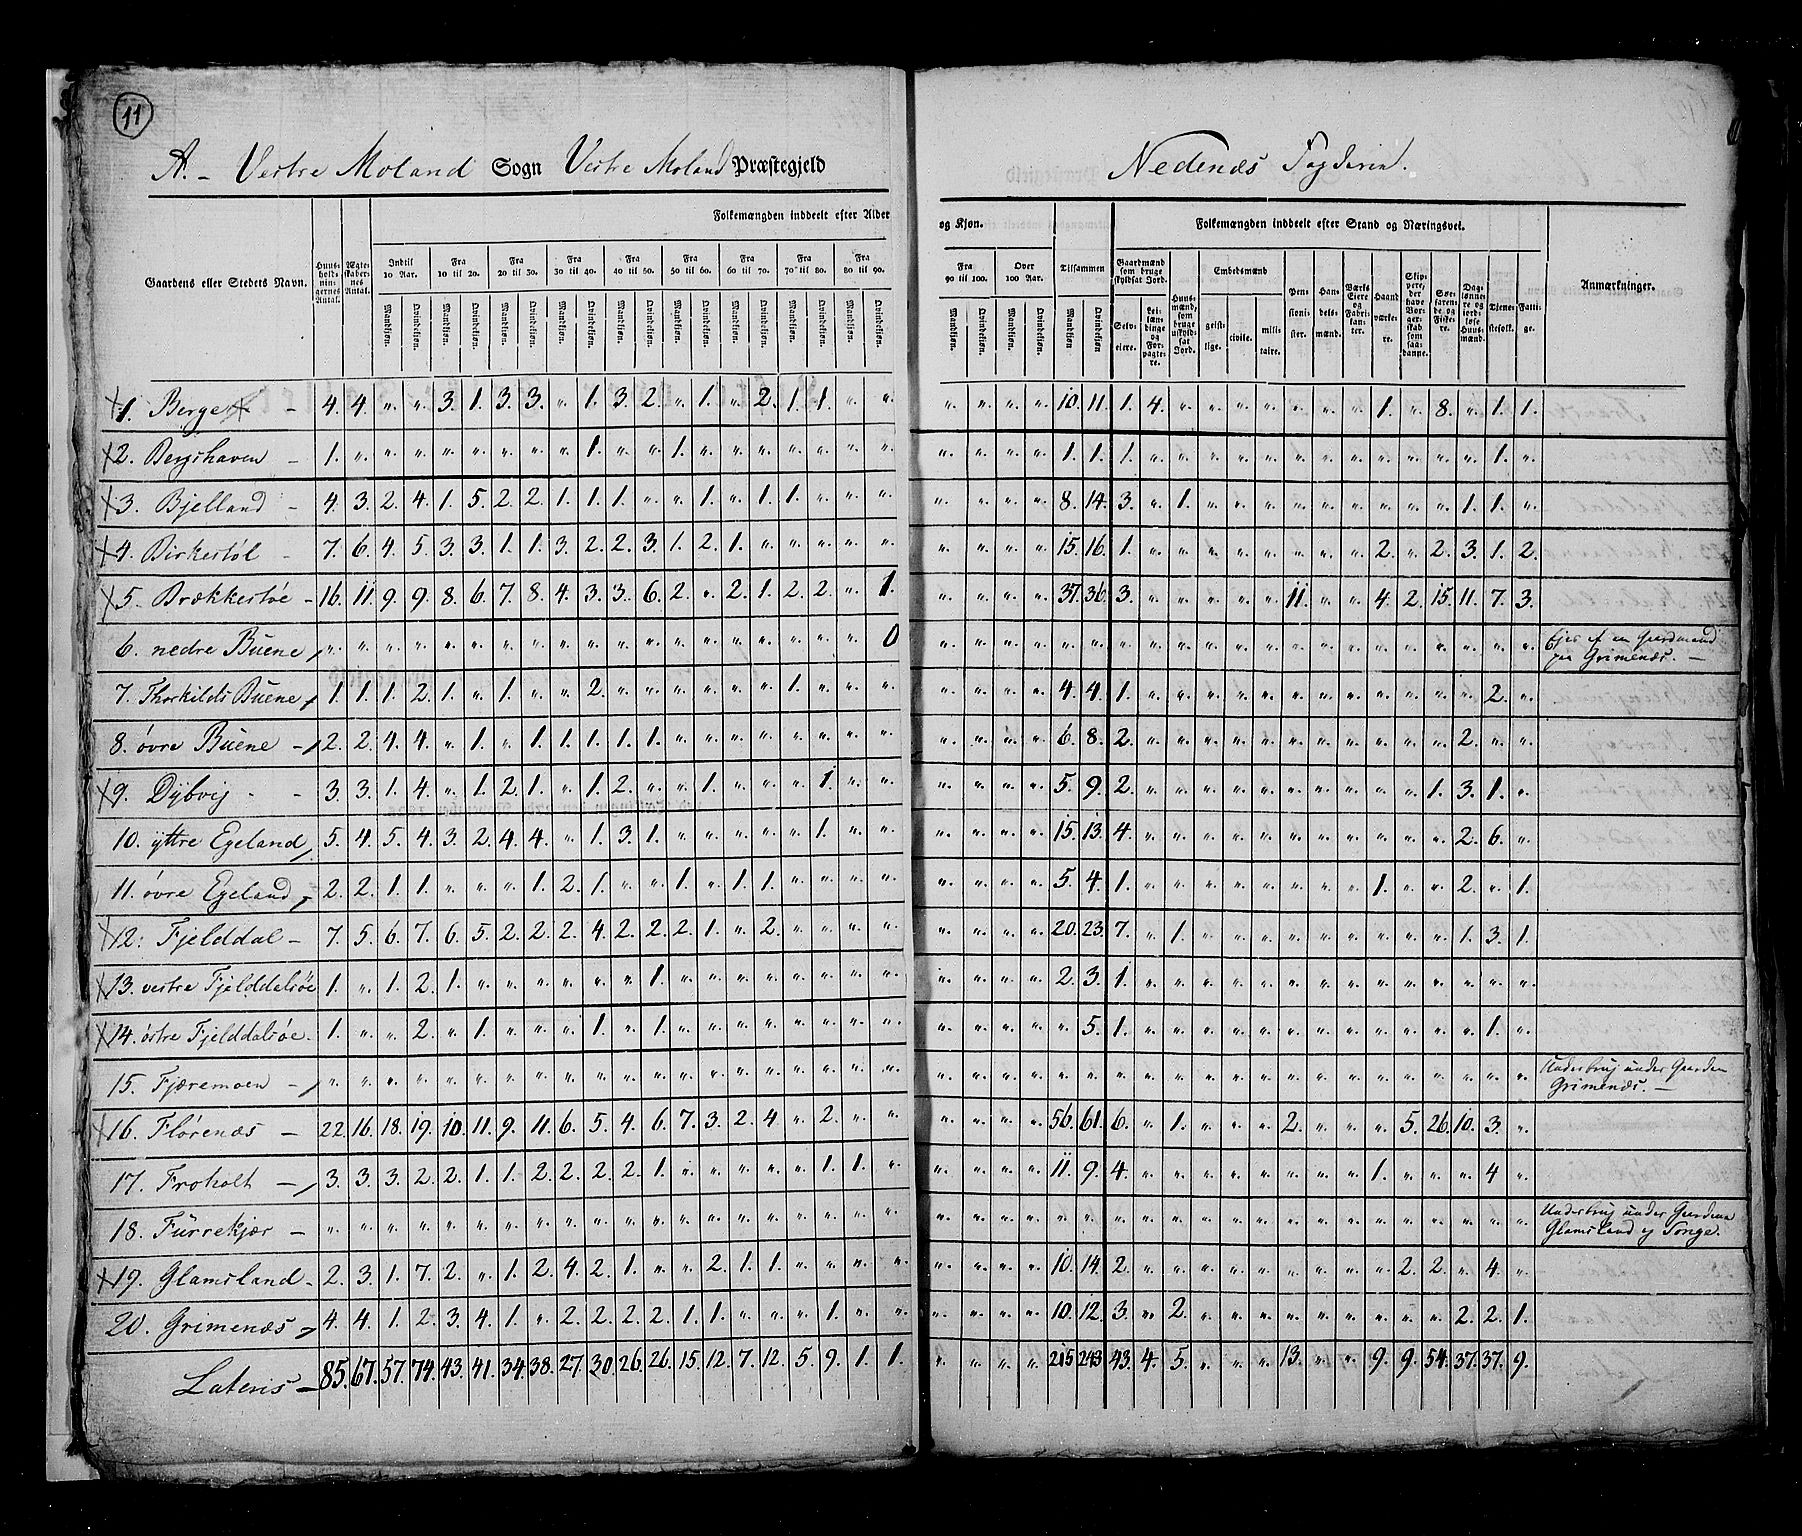 11
A. - Vestre Moland Sogn Vestre Moland Præstegjeld
Nedenæs Fogderie.
Gaardens eller Stedets Navn.
Huusholdningernes Antal.
Ægteskabernes Antal.
Folkemængden inddeelt efter Alder
og Kjøn.
Indtil 10 Aar.
Fra 10 til 20.
Fra 20 til 30.
Fra 30 til 40.
Fra 40 til 50.
Fra 50 til 60.
Fra 60 til 70.
Fra 70 til 80.
Fra 80 til 90.
Fra 90 til 100.
Over 100 Aar.
Tilsammen
Mandkjøn. Qvindekjøn.
Folkemængden inddeelt efter Stand og Næringsvei.
Gaardmænd som bruge skyldsat Jord.
Selveiere.
Leilændinge og Forpagtere.
Huusmænd, som bruge uskyldsat Jord.
Embedsmænd
geistlige.
civile.
militaire.
Pensionister.
Handelsmænd.
Værks Eiere og Fabrikanter.
Haandværkere.
Skippere, der have Borgerskab som saadanne.
Søefarende og Fiskere.
Daglønnere og jordløse Huusmænd.
Tjenestefolk.
Fattige.
Anmærkninger.
1. Berge - 4. 4. " " 3. 1. 3. 3. " 1. 3. 2. " 1. " 2. 1. 1. " " " " " " 10. 11. 1. 4. " " " " " " " 1. " 8. " 1. 1.
2. Bergshaven - 1. " " " " " " " " 1. " " 1. " " " " " " " " " " " 1. 1. 1. " " " " " " " " " " " " 1. "
3. Bjelland - 4. 3. 2. 4. 1. 5. 2. 2. 1. 1. 1. " " 1. " 1. 1. " " " " " " " 8. 14. 3. " 1. " " " " " " " " " 1. 1. "
4. Birkestøl - 7. 6. 4. 5. 3. 3. 1. 1. 3. 2. 2. 3. 1. 2. 1. " " " " " " " " " 15. 16. 1. " " " " " " " " 2. " 2. 3. 1. 2.
5. Brækkestøe - 16. 11. 9. 9. 8. 6. 7. 8. 4. 3. 3. 6. 2. " 2. 1. 2. 2. " 1. " " " " 37. 36. 3. " " " " " 11. " " 4. 2. 15. 11. 7. 3.
6. nedre Buene " " " " " " " " " " " " " " " " " " " 0 " " " " " " " " " " " " " " " " " " " " " Ejes af en Gaardmand paa Grimenæs. -
7. Thorkilds Buene 1. 1. 1. 2. 1. " 1. " " 2. " " " " " " 1. " " " " " " " 4. 4. 1. " " " " " " " " " " " " 2. "
8. øvre Buene - 2. 2. 4. 4. " 1. " 1. 1. 1. 1. 1. " " " " " " " " " " " " 6. 8. 2. " " " " " " " " " " " 2. " "
9. Dybvig - - 3. 3. 1. 4. " 1. 2. 1. " 1. 2. " " 1. " " " 1. " " " " " " 5. 9. 2. " " " " " " " " " " 1. 3. 1. "
10. yttre Egeland 5. 4. 5. 4. 3. 2. 4. 4. " 1. 3. 1. " " " " " 1. " " " " " " 15. 13. 4. " " " " " " " " " " " 2. 6. "
11. øvre Egeland 2. 2. 1. 1. " " " 1. 2. 1. " " 1. " 1. 1. " " " " " " " " 5. 4. 1. " " " " " " " " 1. " " 2. " 1.
12. Fjelddal - 7. 5. 6. 7. 6. 5. 2. 2. 2. 4. 2. 2. 2. 1. " 2. " " " " " " " " 20. 23. 7. " 1. " " " " " " " " " 1. 3. 1.
13. vestre Fjelddalsøe 1. " 1. 2. 1. " " " " " " 1. " " " " " " " " " " " " 2. 3. 1. " " " " " " " " " " " " " "
14. østre Fjelddalsøe. 1. " " 2. " 1. " " " 1. " 1. " " " " " " " " " " " " " 5. 1. " " " " " " " " " " " " 1. "
15. Fjæremoen - " " " " " " " " " " " " " " " " " " " " " " " " " " " " " " " " " " " " " " " " " Underbrug under Gaarden Grimenæs. -
16. Florenæs - 22. 16. 18. 19. 10. 11. 9. 11. 6. 5. 4. 6. 7. 3. 2. 4. " 2. " " " " " " 56. 61. 6. " 1. " " " 2. " " " 5. 26. 10. 3. "
17. Froholt - 3. 3. 3. 2. 2. 1. 1. 2. 2. 2. 2. 1. " " " " " 1. 1. " " " " " 11. 9. 4. " " " " " " " " 1. " " " 4. "
18. Furrekjær - " " " " " " " " " " " " " " " " " " " " " " " " " " " " " " " " " " " " " " " " " Underbrug under Gaardene Glamsland og Tonge.
19. Glamsland - 2. 3. 1. 7. 2. " 1. 2. 4. 2. 1. " " 2. 1. 1. " " " " " " " " 10. 14. 2. " " " " " " " " " 2. 2. " 4. "
20. Grimenæs 4. 4. 1. 2. 3. 4. 1. " 2. 2. 2. 2. 1. 1. " " " 1. " " " " " " 10. 12. 3. " 2. " " " " " " " " " 2. 2. 1.
Lateris - 85. 67. 57. 74. 43. 41. 34. 38. 27. 30. 26. 26. 15. 12. 7. 12. 5. 9. 1. 1. " " " " 215 243 43. 4. 5. " " " 13. " " 9. 9. 54. 37. 37. 9.